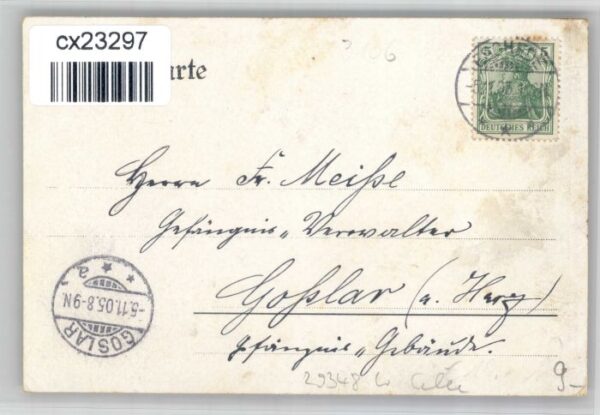 cx23297
arte
5 5
DEUTSCHES REICH
Herrn Fr. Meiße
Gefängnis„Verwalter
Goßlar (a. Harz)
Gefängnis„Gebäude.
GOSLAR
-5.11.05.8-9N
* a *
29348
9-